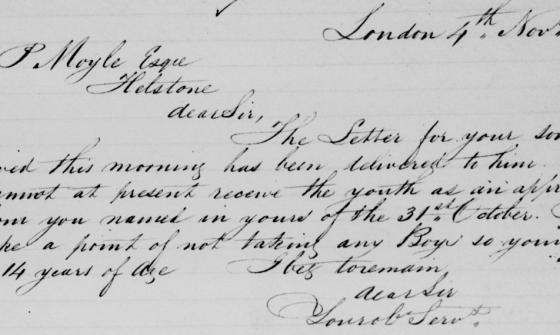 London 4th. Nov
P Moyle Esqre
Helstone
dear Sir,
The Letter for your son
ved this morning has been delivered to him.
annot at present receve the youth as an appr
om you named in yours of the 31st October.
ke a point of not taking any Boys so youn
14 years of age I beg to remain
dear Sir
Your ob Servt.